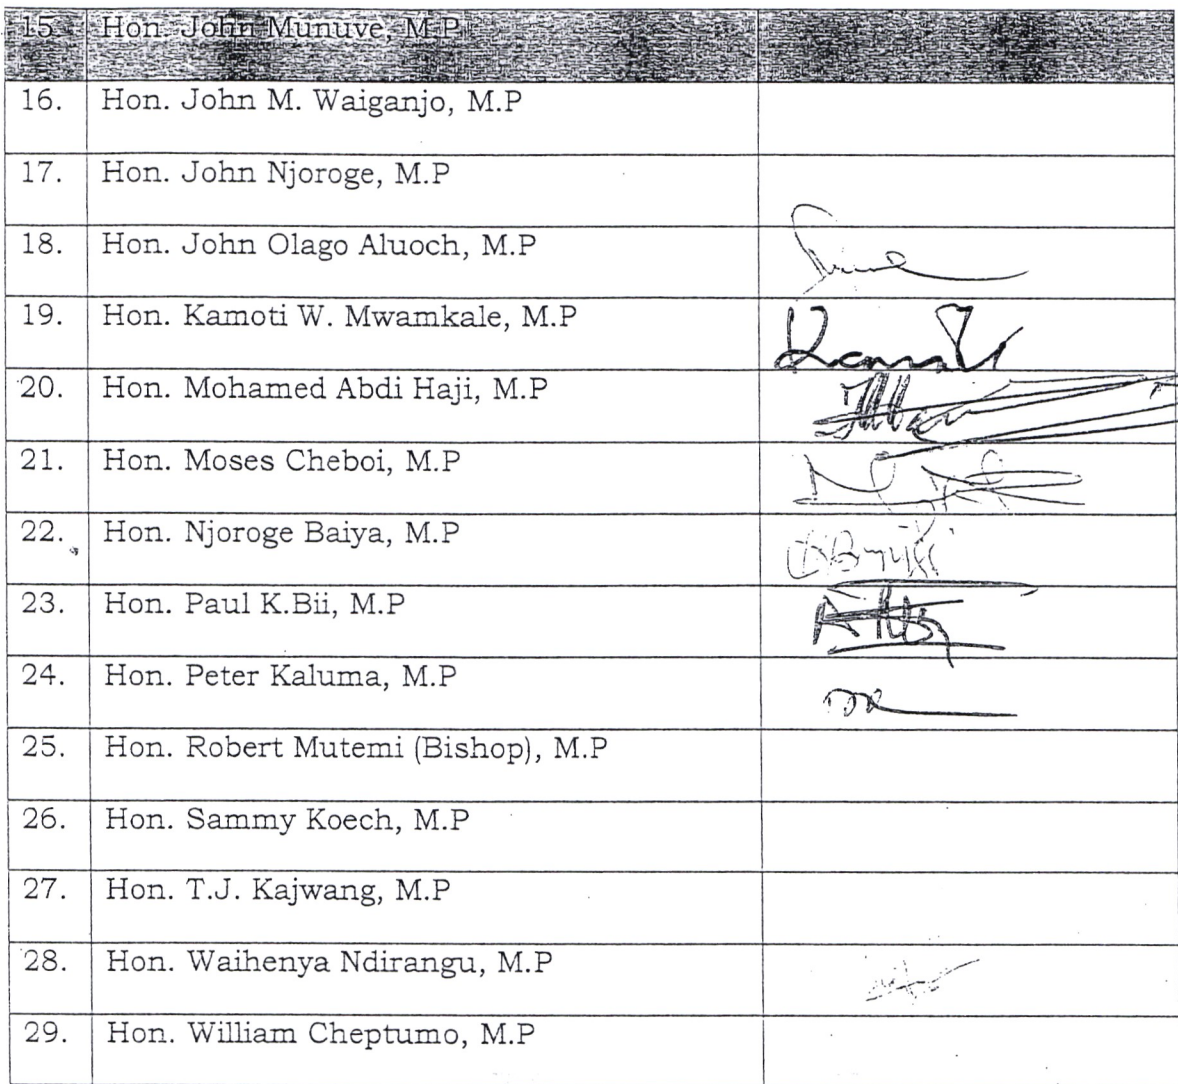 15 Hon. John Munuve, M.P
16. Hon. John M. Waiganjo, M.P
17. Hon. John Njoroge, M.P
18. Hon. John Olago Aluoch, M.P
19. Hon. Kamoti W. Mwamkale, M.P
20. Hon. Mohamed Abdi Haji, M.P
21. Hon. Moses Cheboi, M.P
22. Hon. Njoroge Baiya, M.P
23. Hon. Paul K.Bii, M.P
24. Hon. Peter Kaluma, M.P
25. Hon. Robert Mutemi (Bishop), M.P
26. Hon. Sammy Koech, M.P
27. Hon. T.J. Kajwang, M.P
28. Hon. Waihenya Ndirangu, M.P
29. Hon. William Cheptumo, M.P